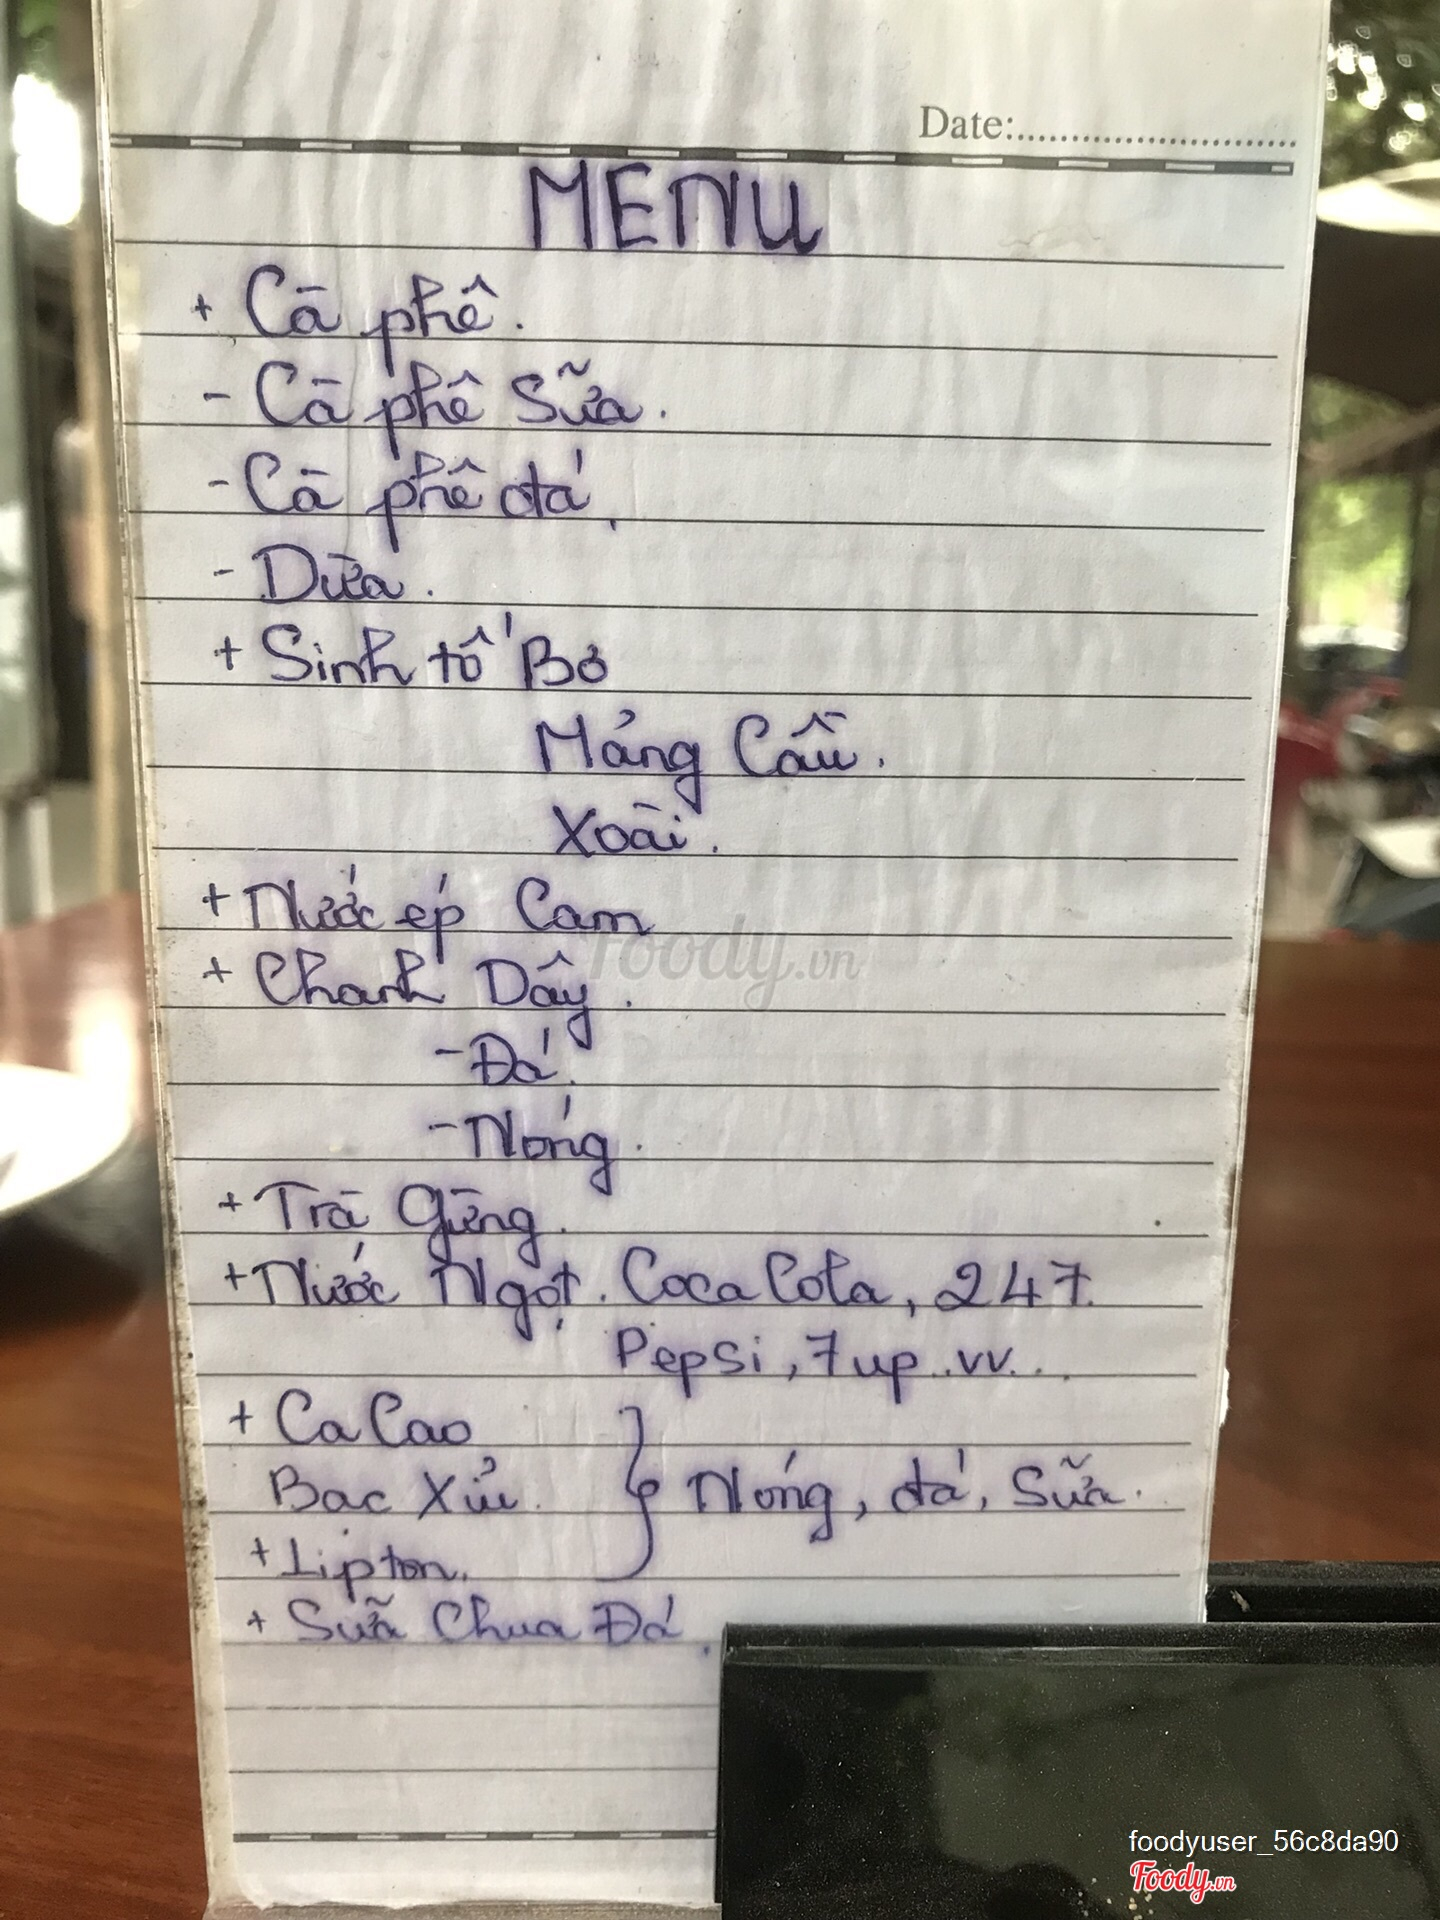 Date:...........................
MENU
+ Cà phê.
- Cà phê Sữa.
- Cà phê đá.
- Dừa.
+ Sinh tố Bơ
Mảng Cầu.
Xoài.
+ Nước ép Cam
+ Chanh Dây.
- Đá.
- Nóng.
+ Trà Gừng.
+ Nước Ngọt. Coca Cola, 247.
Pepsi, 7up..vv...
+ Ca Cao
Bạc Xỉu. } Nóng, đá, Sữa.
+ Lipton.
+ Sữa Chua Đá.
Foody.vn
foodyuser_56c8da90
Foody.vn